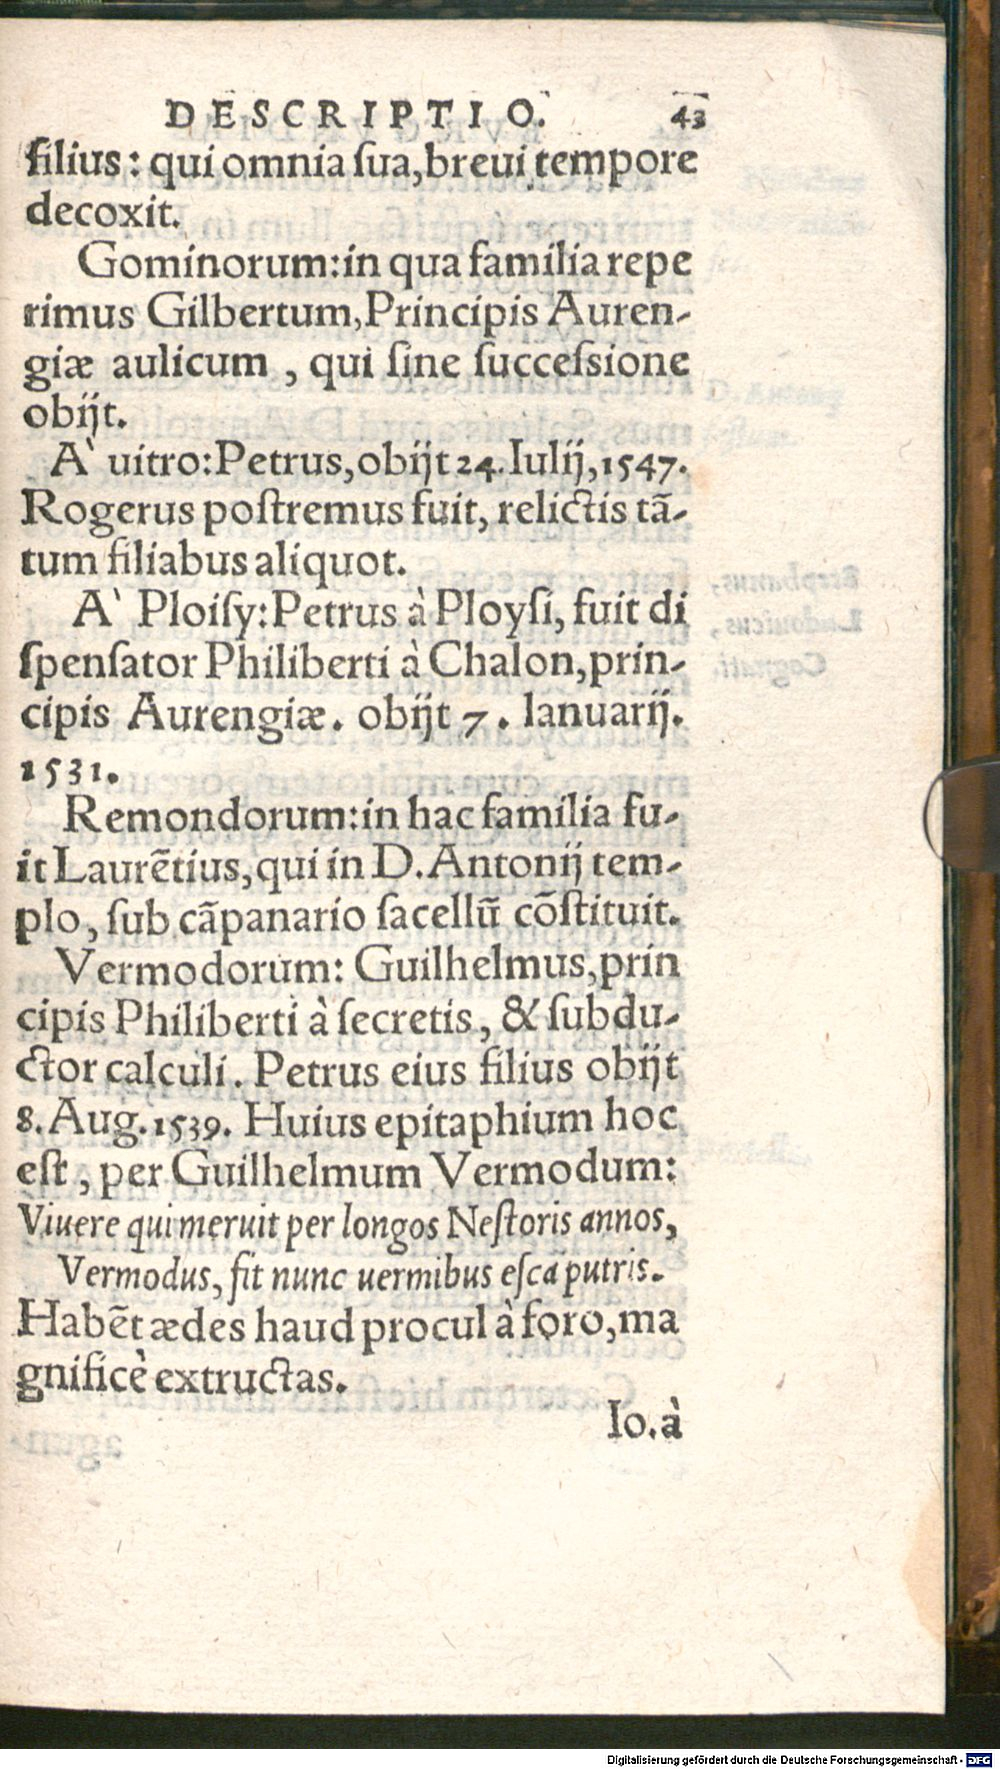 DESCRIPTIO. 43
filius: qui omnia sua, breui tempore
decoxit.
Gominorum: in qua familia repe
rimus Gilbertum, Principis Auren-
giæ aulicum, qui sine successione
obijt.
A` uitro: Petrus, obijt 24. Iulij, 1547.
Rogerus postremus fuit, relictis tã-
tum filiabus aliquot.
A` Ploisy: Petrus à Ploysi, fuit di
spensator Philiberti à Chalon, prin-
cipis Aurengiæ. obijt 7. Ianuarij.
1531.
Remondorum: in hac familia fu-
it Laurẽtius, qui in D. Antonij tem-
plo, sub cãpanario sacellũ cõstituit.
Vermodorum: Guilhelmus, prin
cipis Philiberti à secretis, & subdu-
ctor calculi. Petrus eius filius obijt
8. Aug. 1539. Huius epitaphium hoc
est, per Guilhelmum Vermodum:
Viuere qui meruit per longos Nestoris annos,
Vermodus, fit nunc uermibus esca putris.
Habẽt ædes haud procul à foro, ma
gnificè extructas.
Io. à
Digitalisierung gefördert durch die Deutsche Forschungsgemeinschaft - DFG